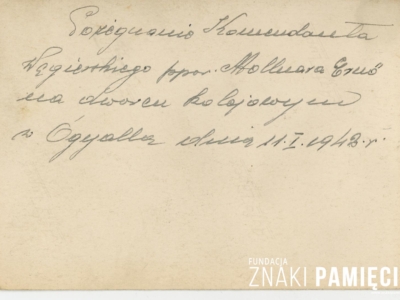 Pożegnanie Komendanta
Węgierskiego ppor. Mollnara Ernö
na dworcu kolejowym
w Ógyalla dnia 11.I.1943.r.
FUNDACJA
ZNAKI PAMIĘCI